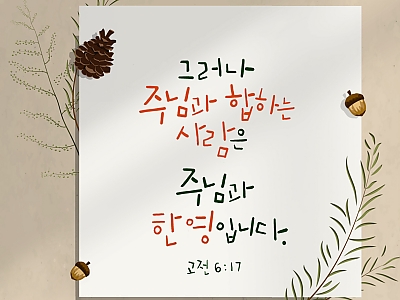 그러나
주님과 합하는
사람은
주님과
한 영입니다.
고전 6:17